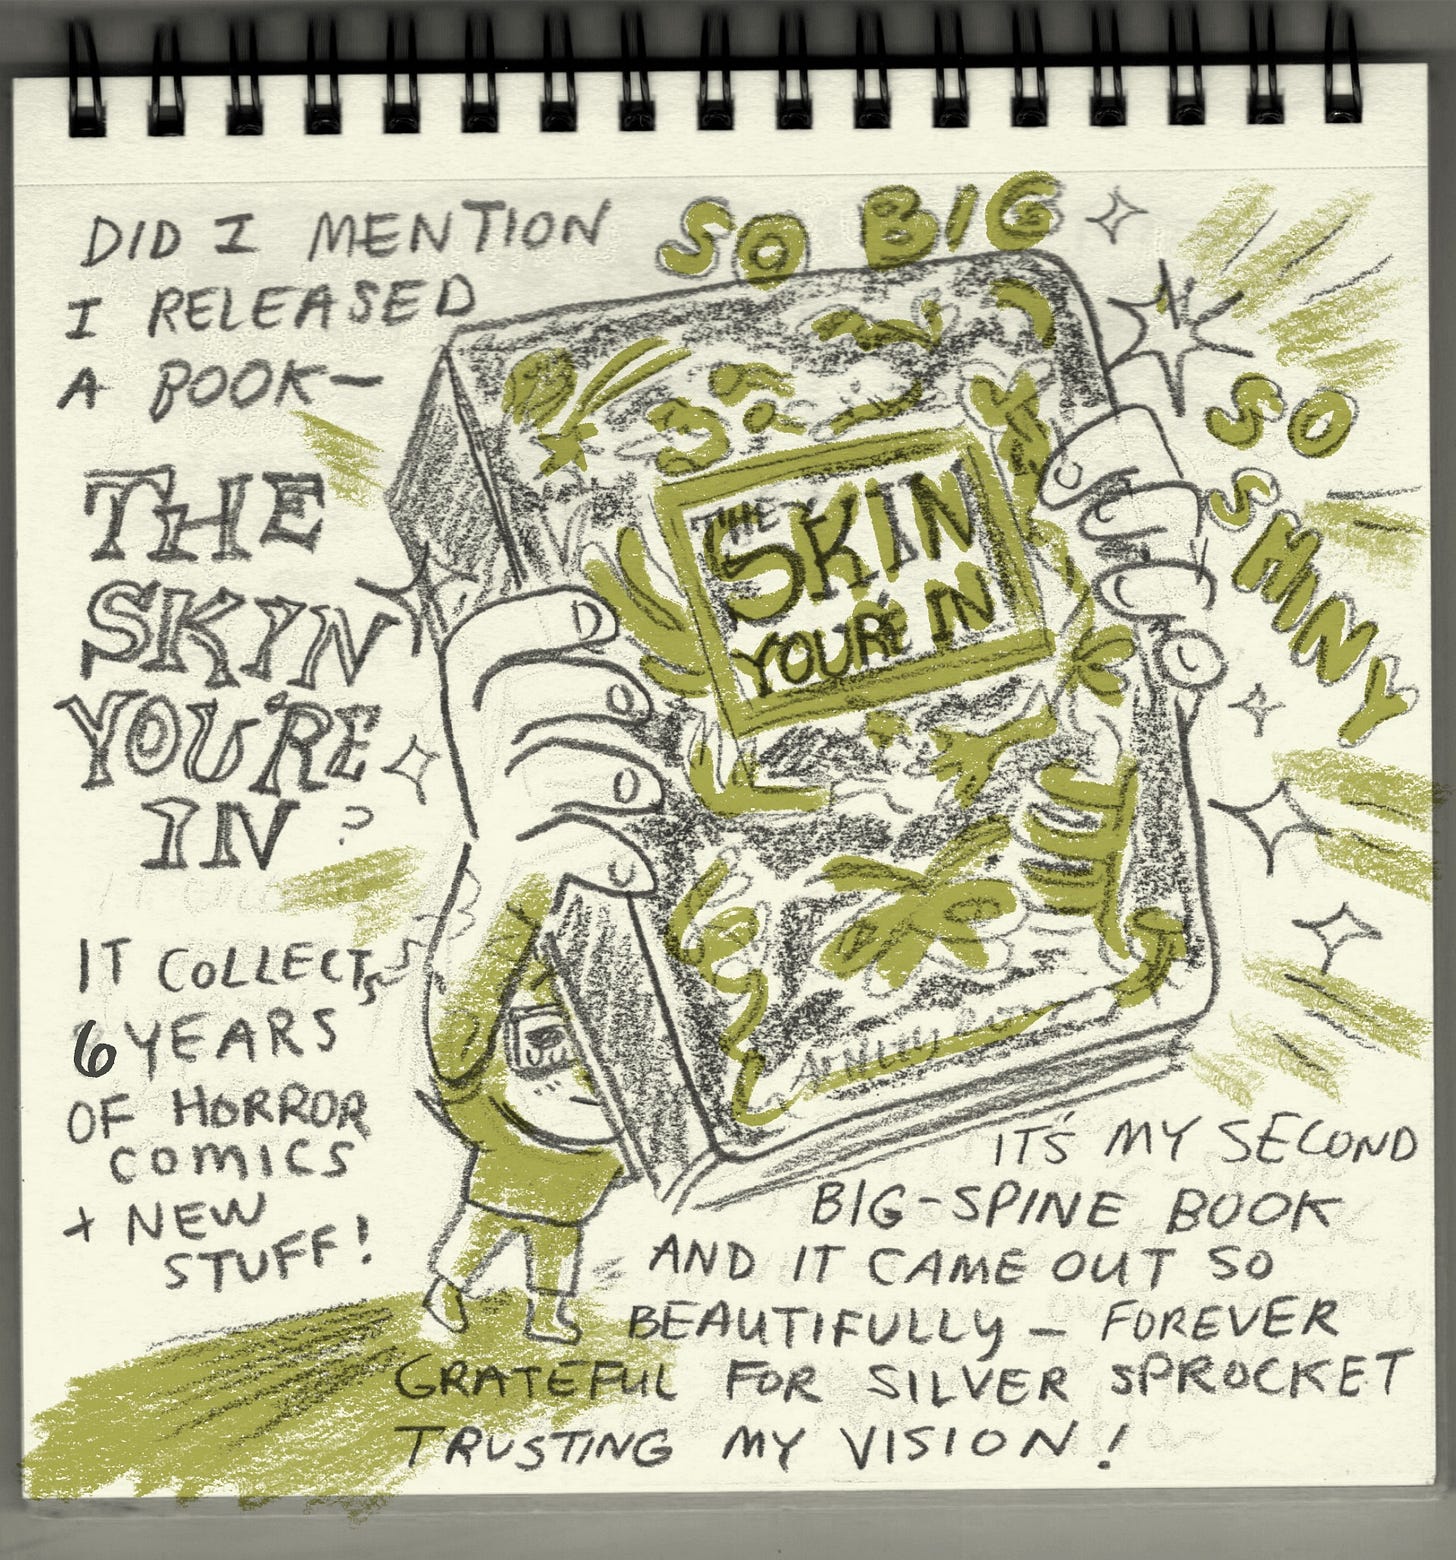 DID I MENTION
I RELEASED
A BOOK—
THE
SKIN
YOU'RE
IN?
SO BIG
SO
SHINY
THE
SKIN
YOU'RE IN
IT COLLECTS
6 YEARS
OF HORROR
COMICS
+ NEW
STUFF!
IT'S MY SECOND
BIG-SPINE BOOK
AND IT CAME OUT SO
BEAUTIFULLY — FOREVER
GRATEFUL FOR SILVER SPROCKET
TRUSTING MY VISION!